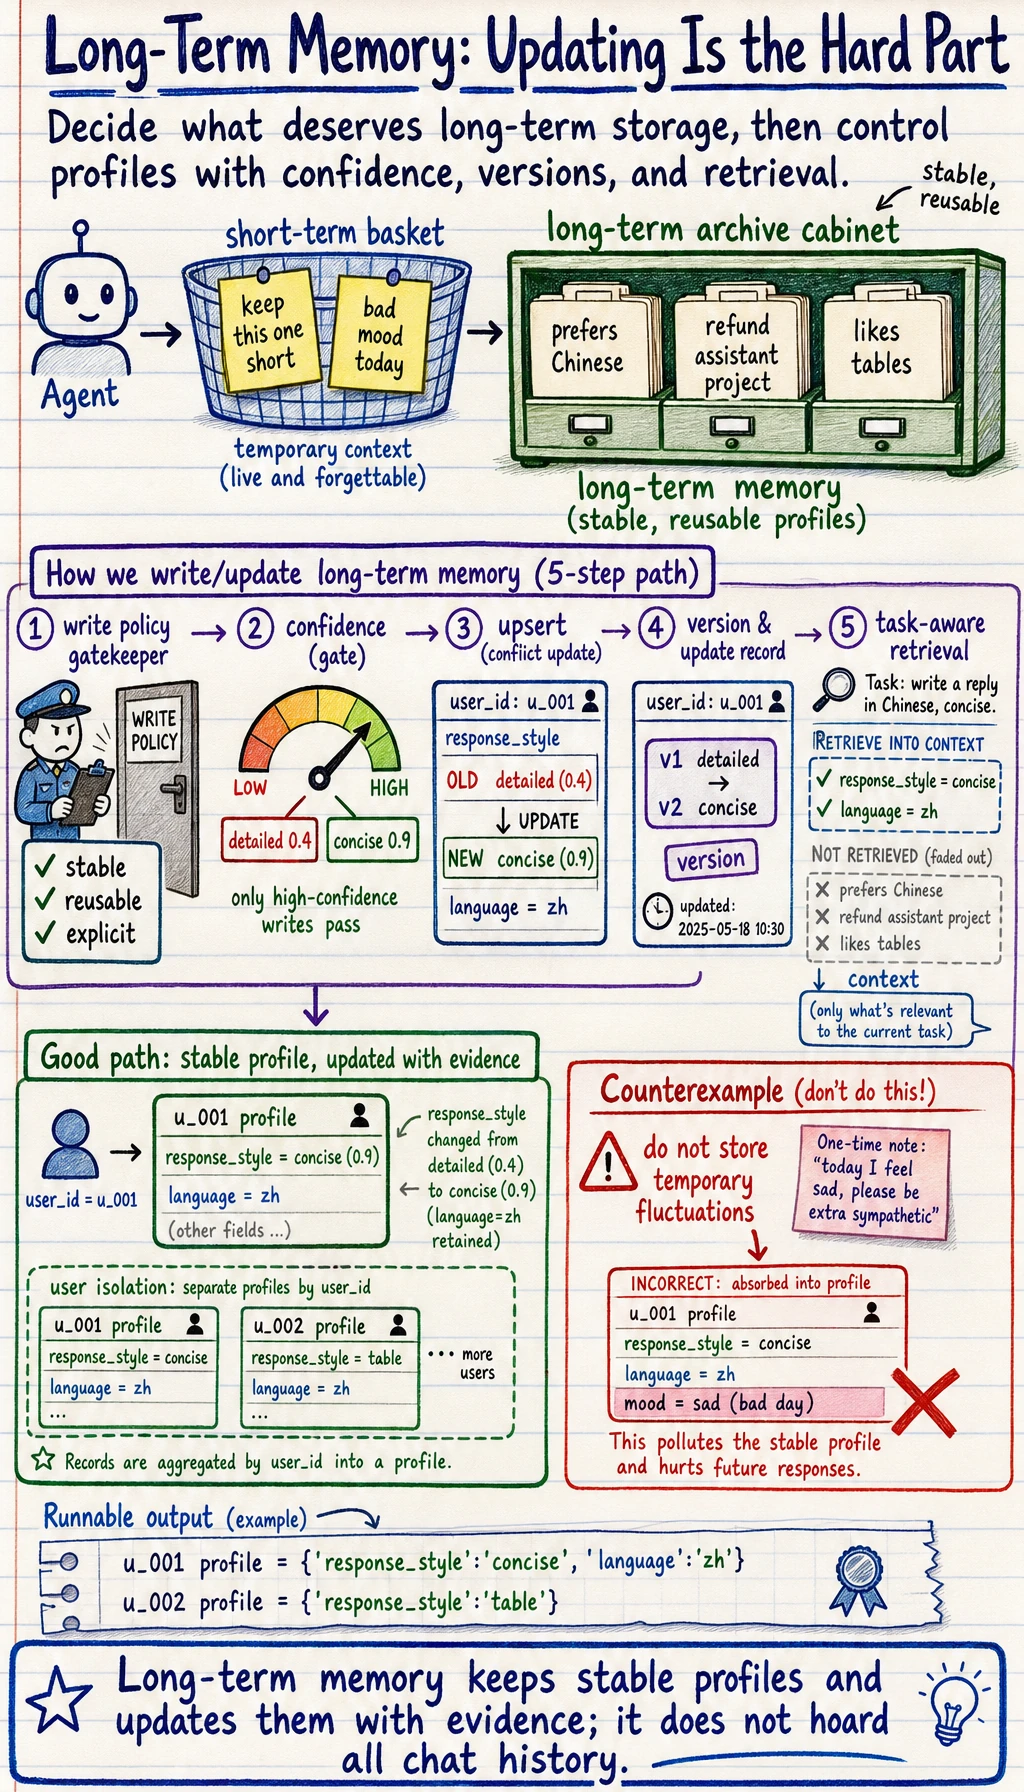 Long-Term Memory: Updating Is the Hard Part
Decide what deserves long-term storage, then control
profiles with confidence, versions, and retrieval.
stable,
reusable
short-term basket
long-term archive cabinet
keep
this one
short
bad
mood
today
prefers
Chinese
refund
assistant
project
likes
tables
Agent
temporary context
(live and forgettable)
long-term memory
(stable, reusable profiles)
How we write/update long-term memory (5-step path)
1 write policy
gatekeeper
2 confidence
(gate)
3 upsert
(conflict update)
4 version &
update record
5 task-aware
retrieval
WRITE
POLICY
✓ stable
✓ reusable
✓ explicit
LOW
HIGH
detailed 0.4
concise 0.9
only high-confidence
writes pass
user_id: u_001
response_style
OLD detailed (0.4)
↓ UPDATE
NEW concise (0.9)
language = zh
user_id: u_001
v1 detailed
→
v2 concise
version
updated:
2025-05-18 10:30
Task: write a reply
in Chinese, concise.
RETRIEVE INTO CONTEXT
✓ response_style = concise
✓ language = zh
NOT RETRIEVED (faded out)
✗ prefers Chinese
✗ refund assistant project
✗ likes tables
↓ context
(only what's relevant
to the current task)
Good path: stable profile, updated with evidence
user_id = u_001
u_001 profile
response_style = concise (0.9)
language = zh
(other fields ...)
response_style
changed from
detailed (0.4)
to concise (0.9)
(language=zh
retained)
user isolation: separate profiles by user_id
u_001 profile
response_style = concise
language = zh
...
u_002 profile
response_style = table
language = zh
...
... more
users
☆ Records are aggregated by user_id into a profile.
Counterexample (don't do this!)
!
do not store
temporary
fluctuations
One-time note:
"today I feel
sad, please be
extra sympathetic"
INCORRECT: absorbed into profile
u_001 profile
response_style = concise
language = zh
mood = sad (bad day)
This pollutes the stable profile
and hurts future responses.
Runnable output (example)
u_001 profile = {'response_style':'concise', 'language':'zh'}
u_002 profile = {'response_style':'table'}
Long-term memory keeps stable profiles and
updates them with evidence; it does not hoard
all chat history.